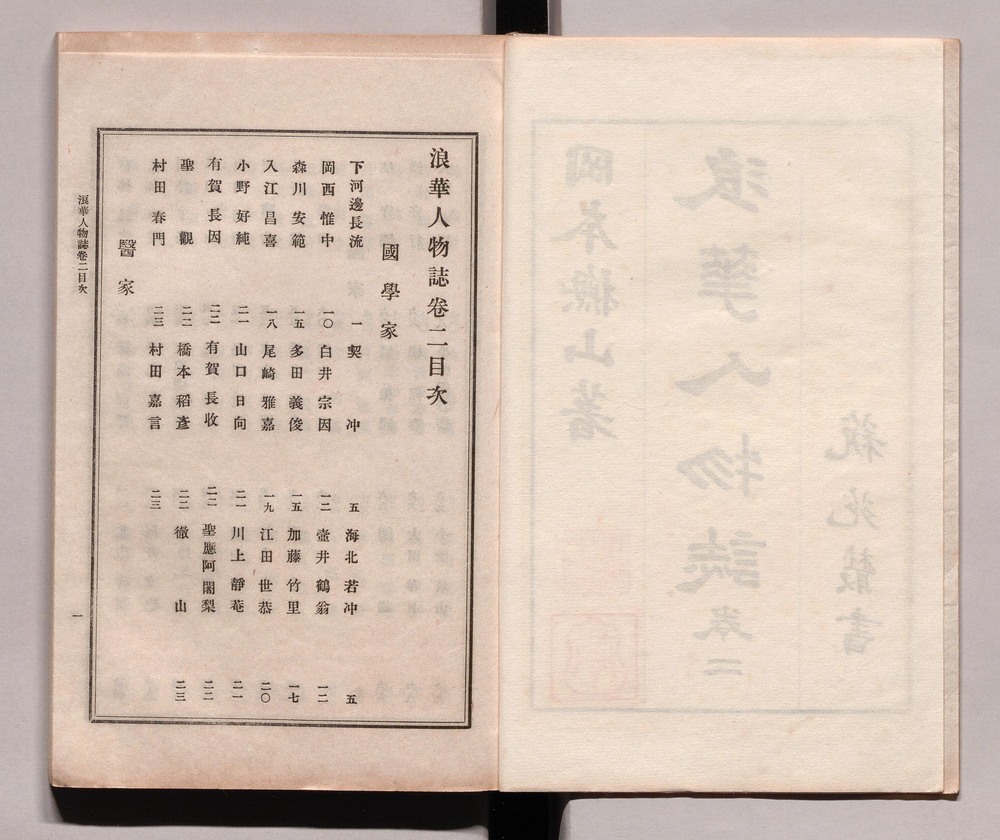 浪華人物誌卷二
岡本撫山著
浪華人物誌卷二目次
國學家
下河邊長流 一 契冲 五 海北若冲 五
岡西惟中 一〇 白井宗因 一二 壺井鶴翁 一二
森川安範 一五 多田義俊 一五 加藤竹里 一七
入江昌喜 一八 尾崎雅嘉 一九 江田世恭 二〇
小野好純 二一 山口日向 二一 川上靜菴 二一
有賀長因 二二 有賀長收 二二 聖應阿闍梨 二二
聖觀 二二 橋本稻彥 二二 徹山 二三
村田春門 二三 村田嘉言 二三
醫家
浪華人物誌卷二目次
一